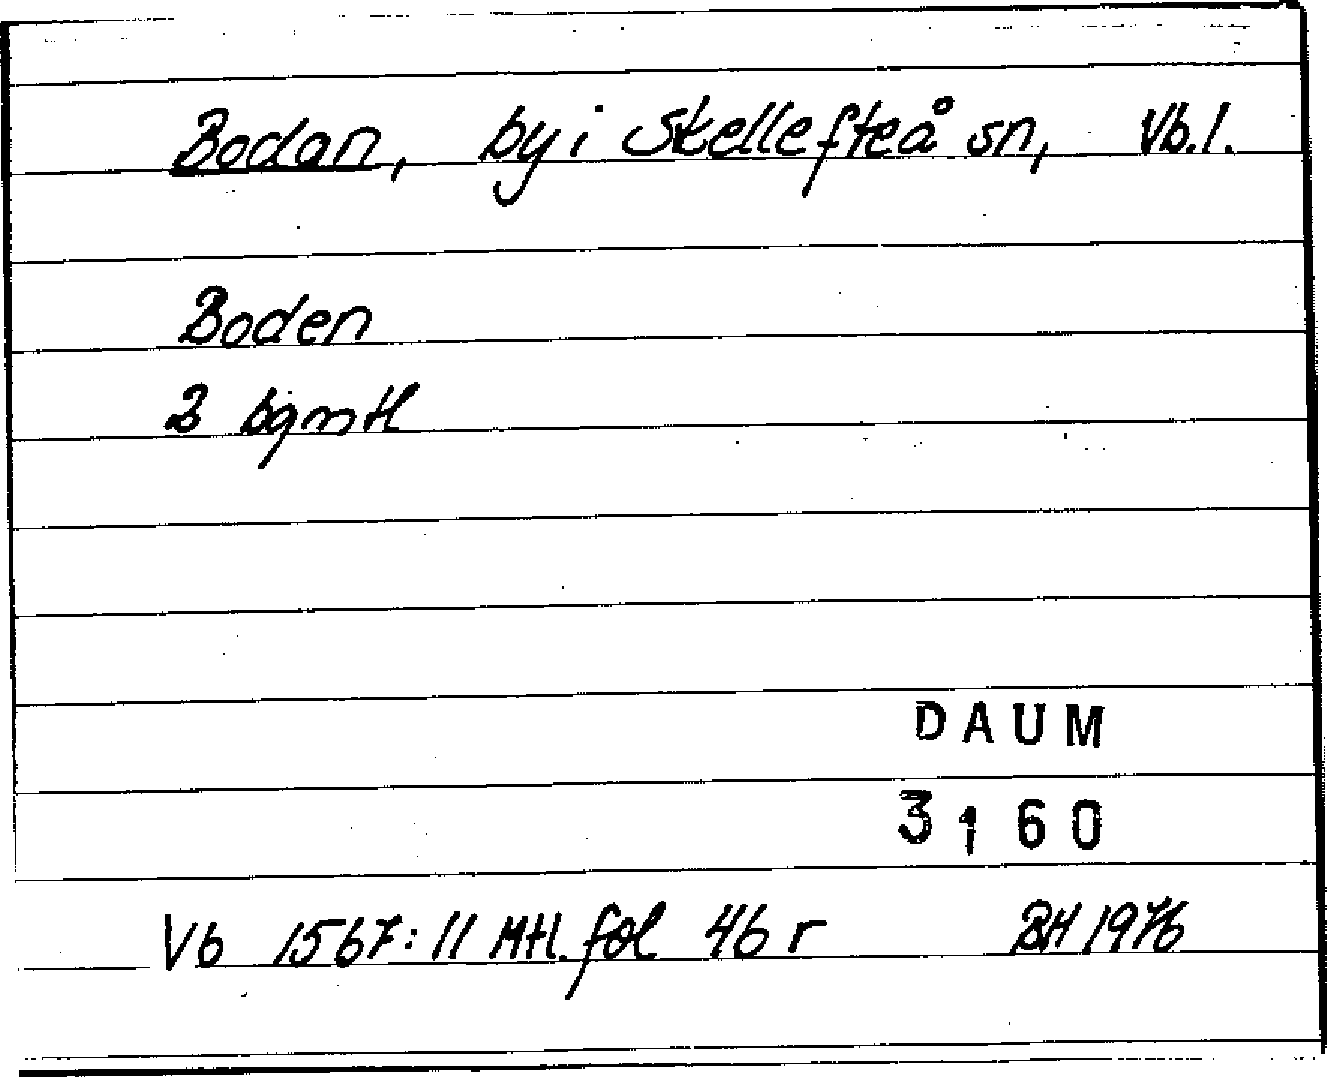 Bodan, by i Skellefteå sn, Vb.l.
Boden
2 bgmtl
DAUM
3160
Vb 1567:11 Mtl. fol 46 r BH 1976